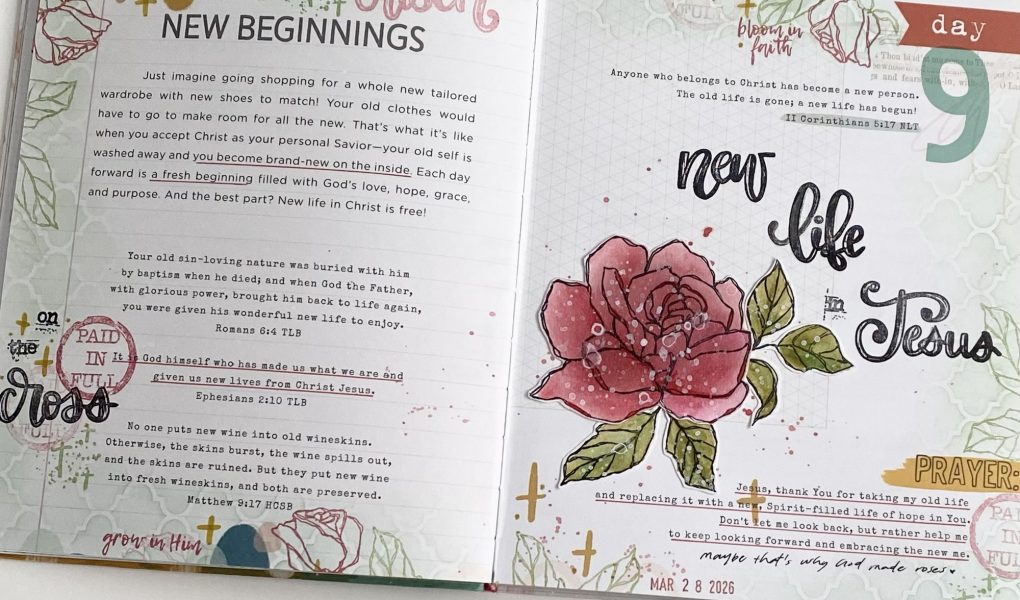 Risen
NEW BEGINNINGS
Just imagine going shopping for a whole new tailored
wardrobe with new shoes to match! Your old clothes would
have to go to make room for all the new. That's what it's like
when you accept Christ as your personal Savior—your old self is
washed away and you become brand-new on the inside. Each day
forward is a fresh beginning filled with God's love, hope, grace,
and purpose. And the best part? New life in Christ is free!
Your old sin-loving nature was buried with him
by baptism when he died; and when God the Father,
with glorious power, brought him back to life again,
you were given his wonderful new life to enjoy.
Romans 6:4 TLB
on
the
cross
PAID
IN
FULL
It is God himself who has made us what we are and
given us new lives from Christ Jesus.
Ephesians 2:10 TLB
FULL
No one puts new wine into old wineskins.
Otherwise, the skins burst, the wine spills out,
and the skins are ruined. But they put new wine
into fresh wineskins, and both are preserved.
Matthew 9:17 HCSB
grow in Him
FULL
bloom in
faith
day
9
Anyone who belongs to Christ has become a new person.
The old life is gone; a new life has begun!
II Corinthians 5:17 NLT
new
life
in
Jesus
PRAYER:
Jesus, thank You for taking my old life
and replacing it with a new, Spirit-filled life of hope in You.
Don't let me look back, but rather help me
to keep looking forward and embracing the new me.
maybe that's why God made roses
PAID
IN
FULL
MAR 28 2026